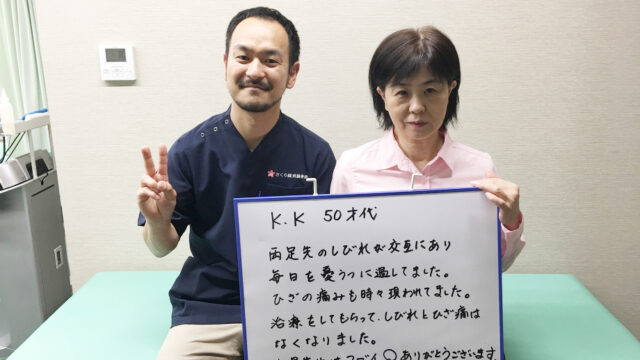 K.K 50才代
両足先のしびれが交互にあり
毎日を憂うつに過してました。
ひざの痛みも時々現われてました。
治療をしてもらって、しびれとひざ痛は
なくなりました。
ありがとうございます